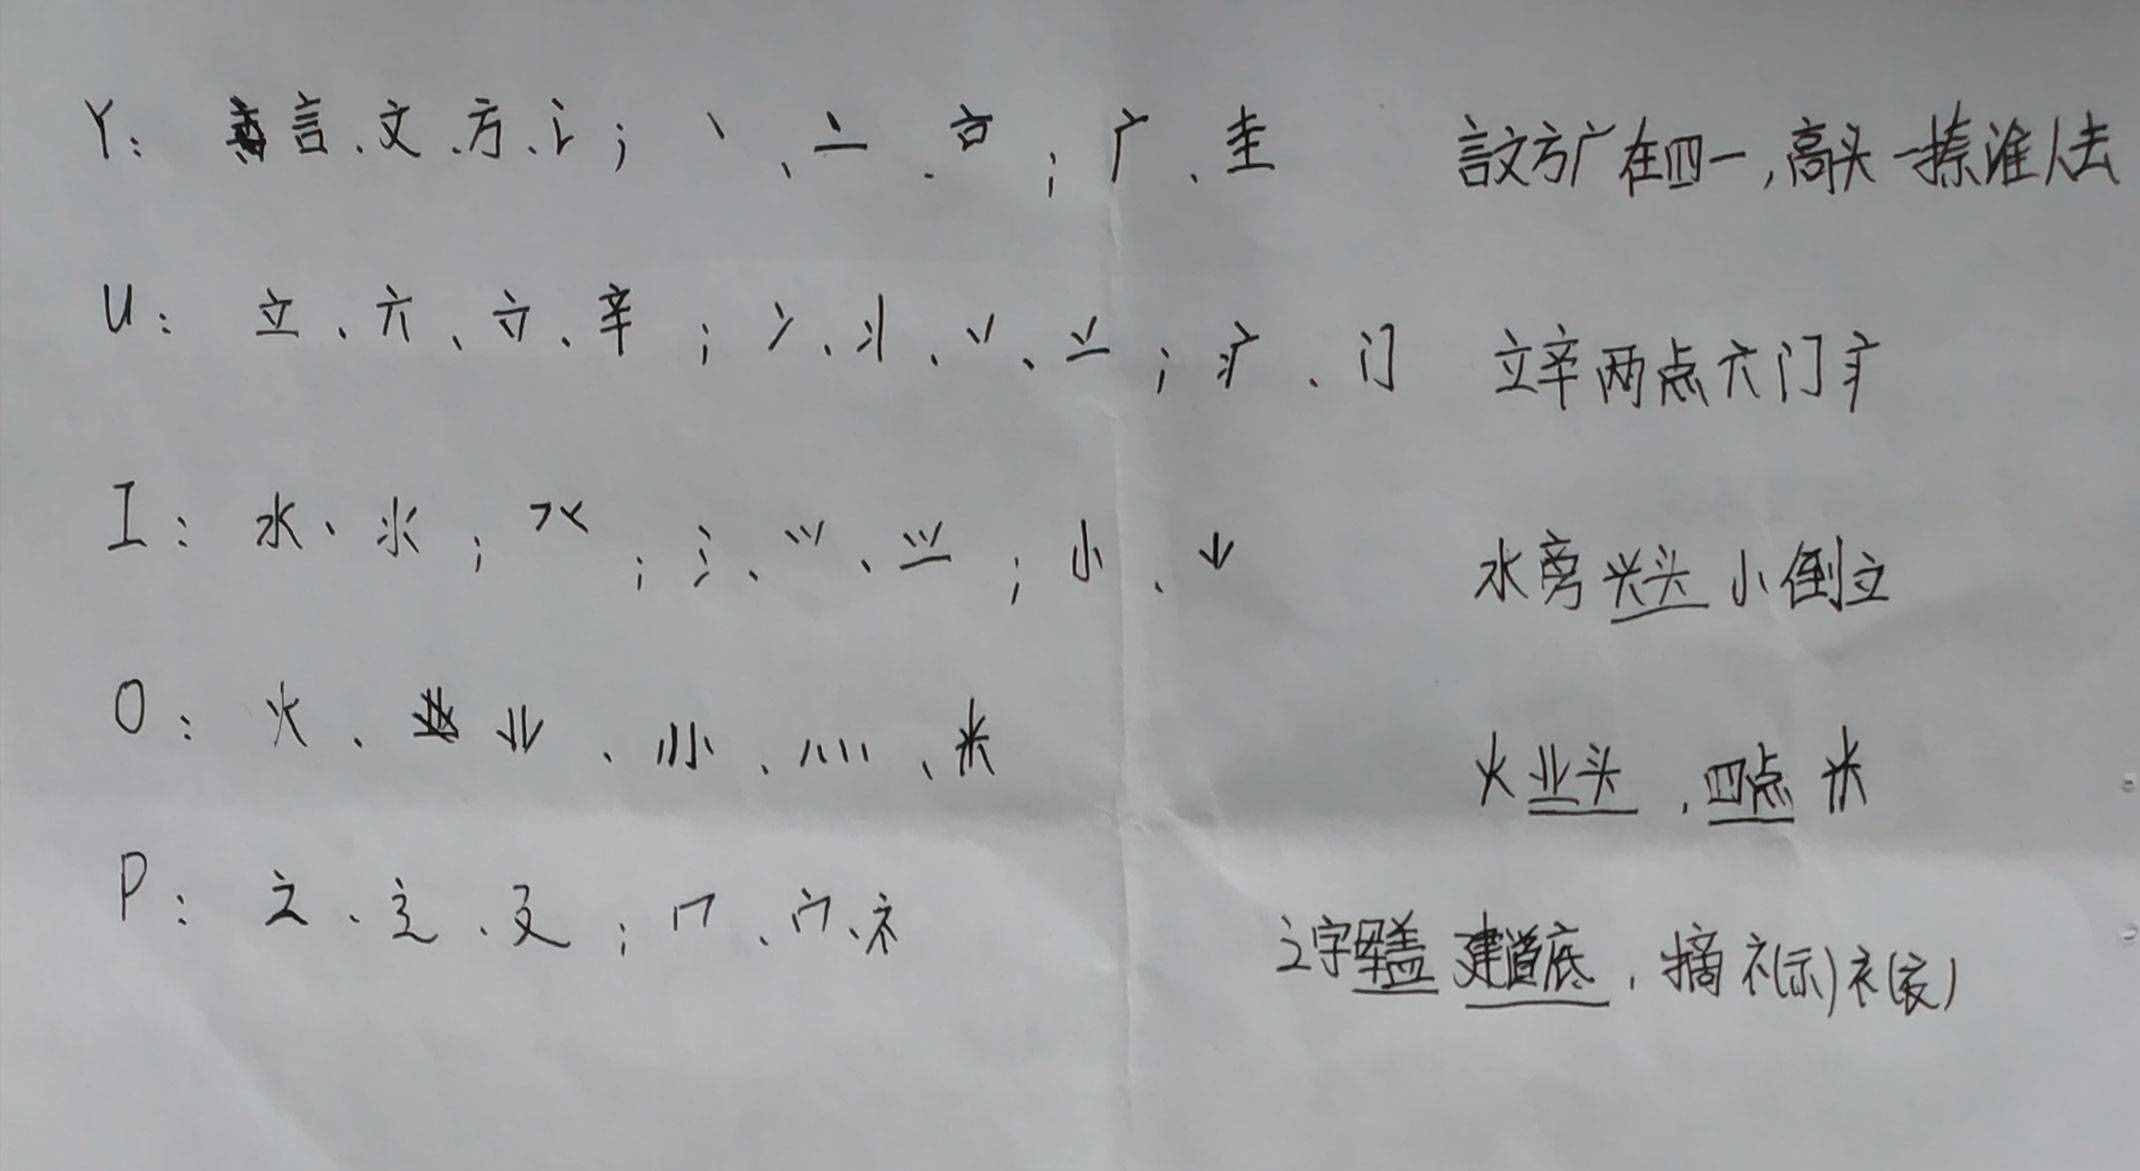 Y: 言、文、方、讠; 丶、亠、𠅃; 广、圭 言文方广在四一,高头一捺谁人去
U: 立、六、立、辛; 冫、丬、丷、䒑; 疒、门 立辛两点六门疒
I: 水、氺; 氵、⺍、𭕄; 小、⺌ 水旁兴头小倒立
O: 火、业、灬、米 火业头,四点米
P: 之、辶、廴; 冖、宀、礻 之字军盖建道底,摘礻(示)衤(衣)